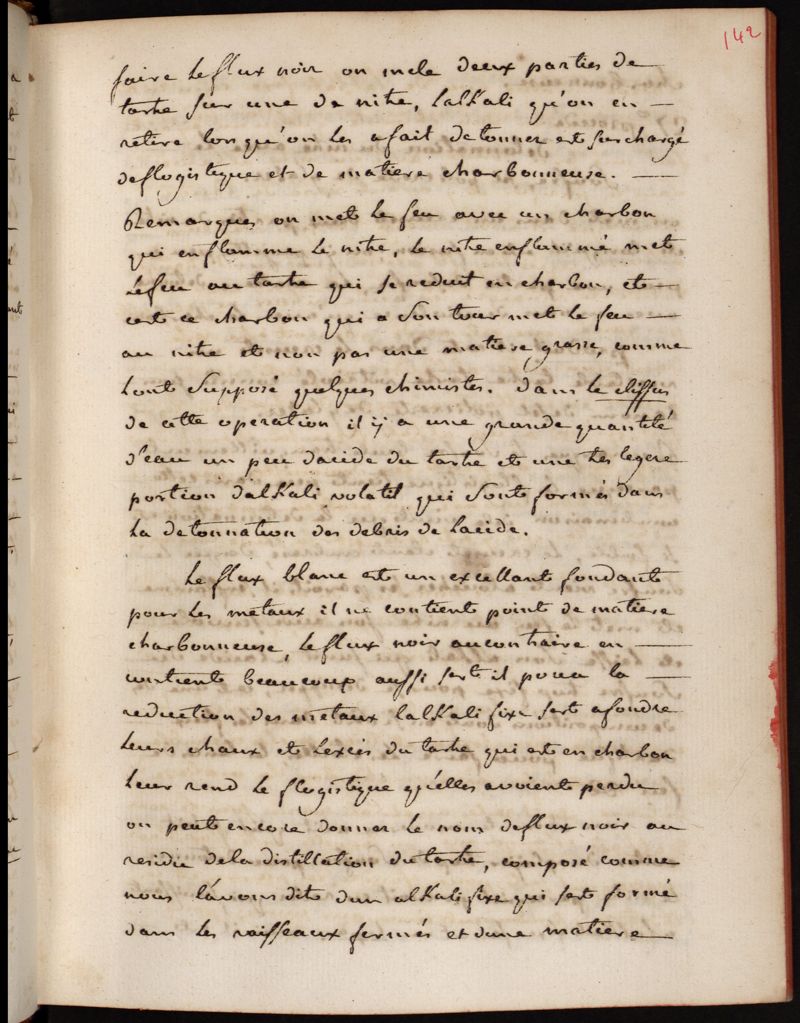 142
faire le flux noir on mele deux parties de
tartre sur une de nitre, lalKali qu'on en
retire lors qu'on les a fait detonner est surchargé
deflogistique et de matiere charbonneuse.
Remarques on met le feu avec un charbon
qui enflamme le nitre, le nitre enflammé met
Lefeu au tartre qui se reduit en charbon, et
cest ce charbon qui a son tour met le feu
au nitre et non pas une matiere grasse, comme
lont supposé quelques chimistes. dans le clissus
de cette operation il ÿ a une grande quantité
d'eau un peu dacide du tartre et une tres legere
portion dalKali volatil qui sont formés dans
La detonnation des debris de lacide.
Le flux blanc est un excellant fondant
pour les metaux il ne contient point de matiere
charbonneuse, le flux noir aucontraire en
contient beaucoup aussi sert il pour la
reduction des metaux lalKali fixe sert afondre
leurs chaux et lexcès du tartre qui est en charbon
leur rend le flogistique qu'elles avoient perdu
on peut encore donner le nom deflux noir au
residu dela distillation du tartre, composé comme
nous l'avons dit dun alKali fixe qui sest formé
dans les vaisseaux fermés et dune matiere